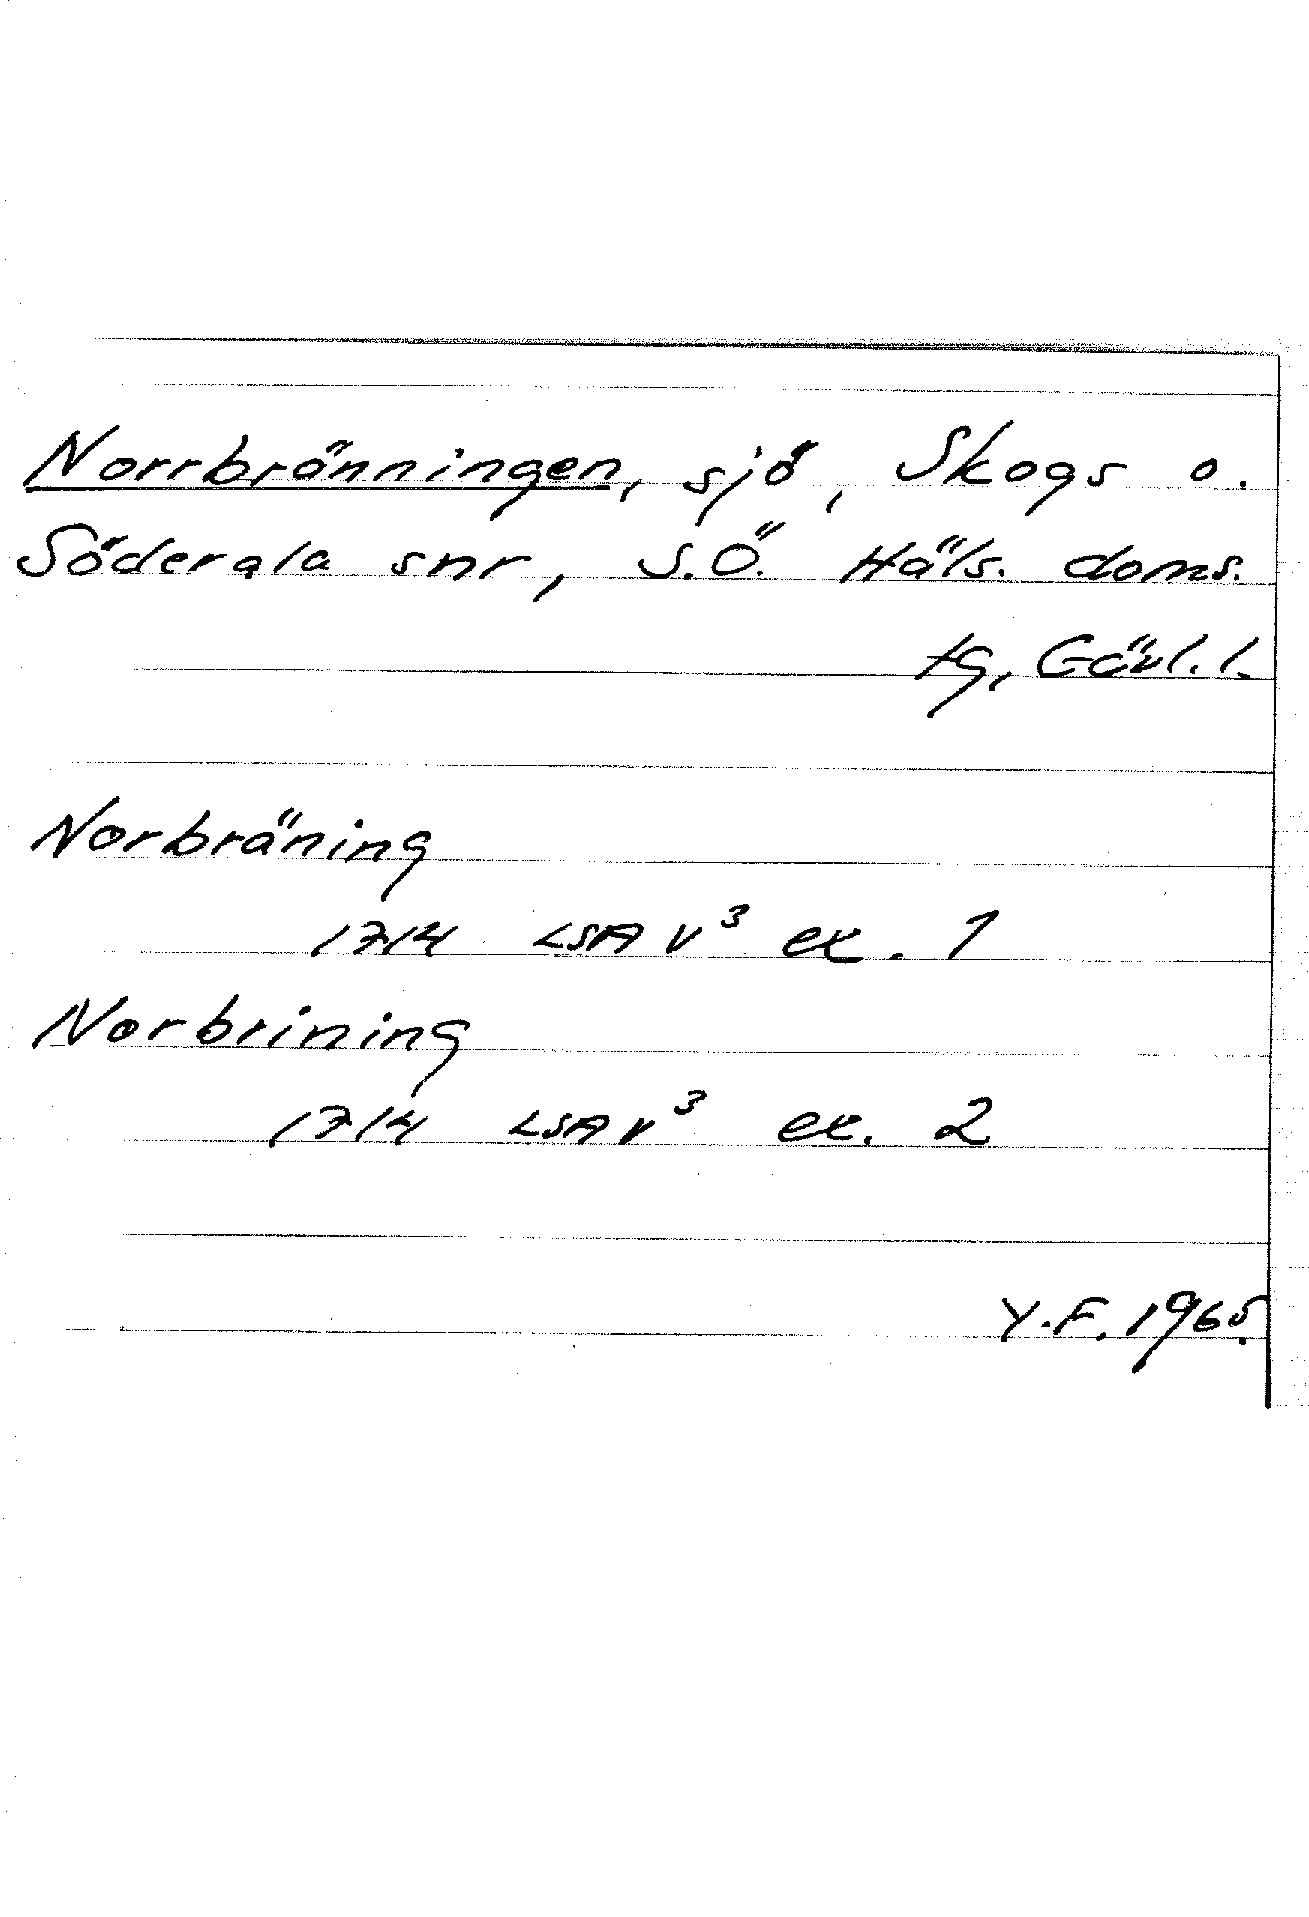 Norrbränningen, sjö, Skogs o.
Söderala snr, S.Ö. Häls. doms.
tg, Gävl. l.
Norbräning
1714 LSA V³ ex. 1
Norbrining
1714 LSA V³ ex. 2
Y.F. 1965.